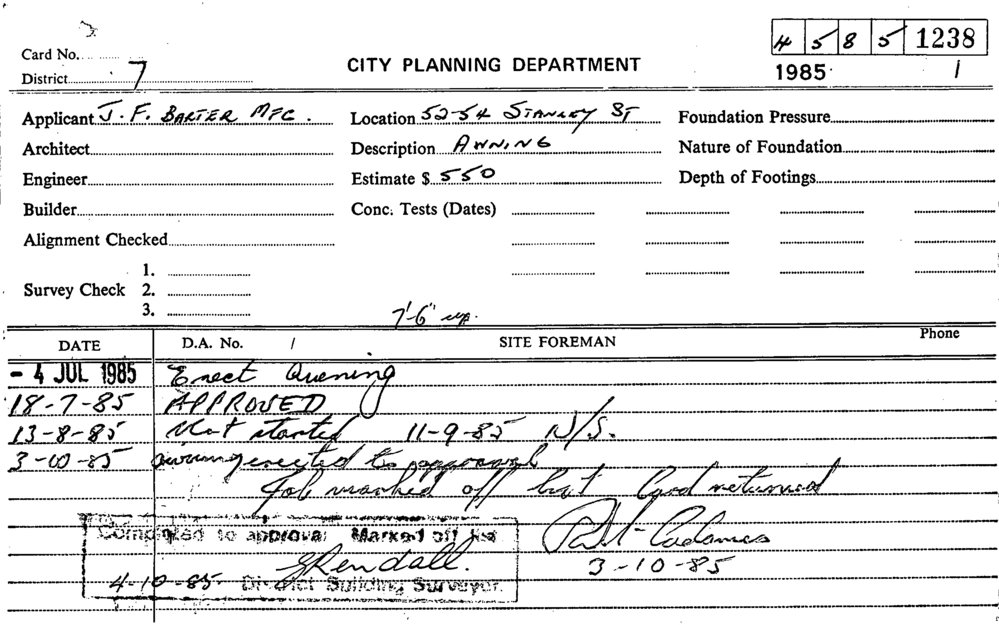 4 5 8 5 1238
Card No.
CITY PLANNING DEPARTMENT
District 7
1985 1
Applicant J. F. BARTER MFG. Location 52-54 STANLEY ST Foundation Pressure
Architect Description AWNING Nature of Foundation
Engineer Estimate $ 550 Depth of Footings
Builder Conc. Tests (Dates)
Alignment Checked
1.
Survey Check 2.
3.
7'-6" up.
DATE D.A. No. / SITE FOREMAN Phone
- 4 JUL 1985 Erect Awning
18-7-85 APPROVED
13-8-85 Not started 11-9-85 N/S.
3-10-85 awning erected to approval
Job marked off list Card returned
Completed to approval Marked off list
3-10-85
4-10-85 District Building Surveyor.